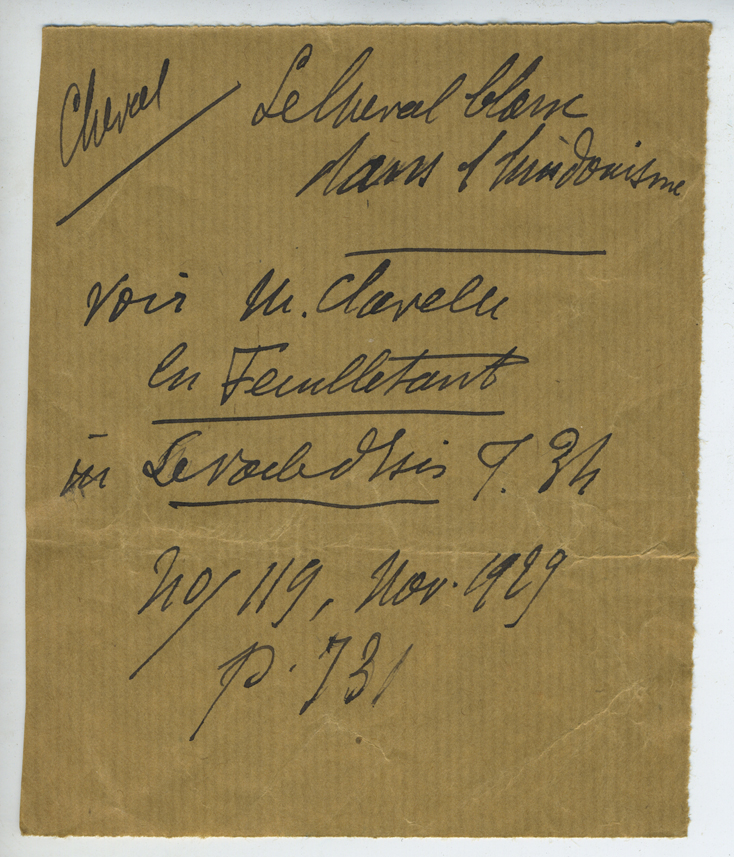 Cheval
Le Cheval blanc
dans l'hindouisme
voir M. Clavelle
En Feuilletant
in Le voile d'Isis T. 34
no/ 119, Nov. 1929
p. 731